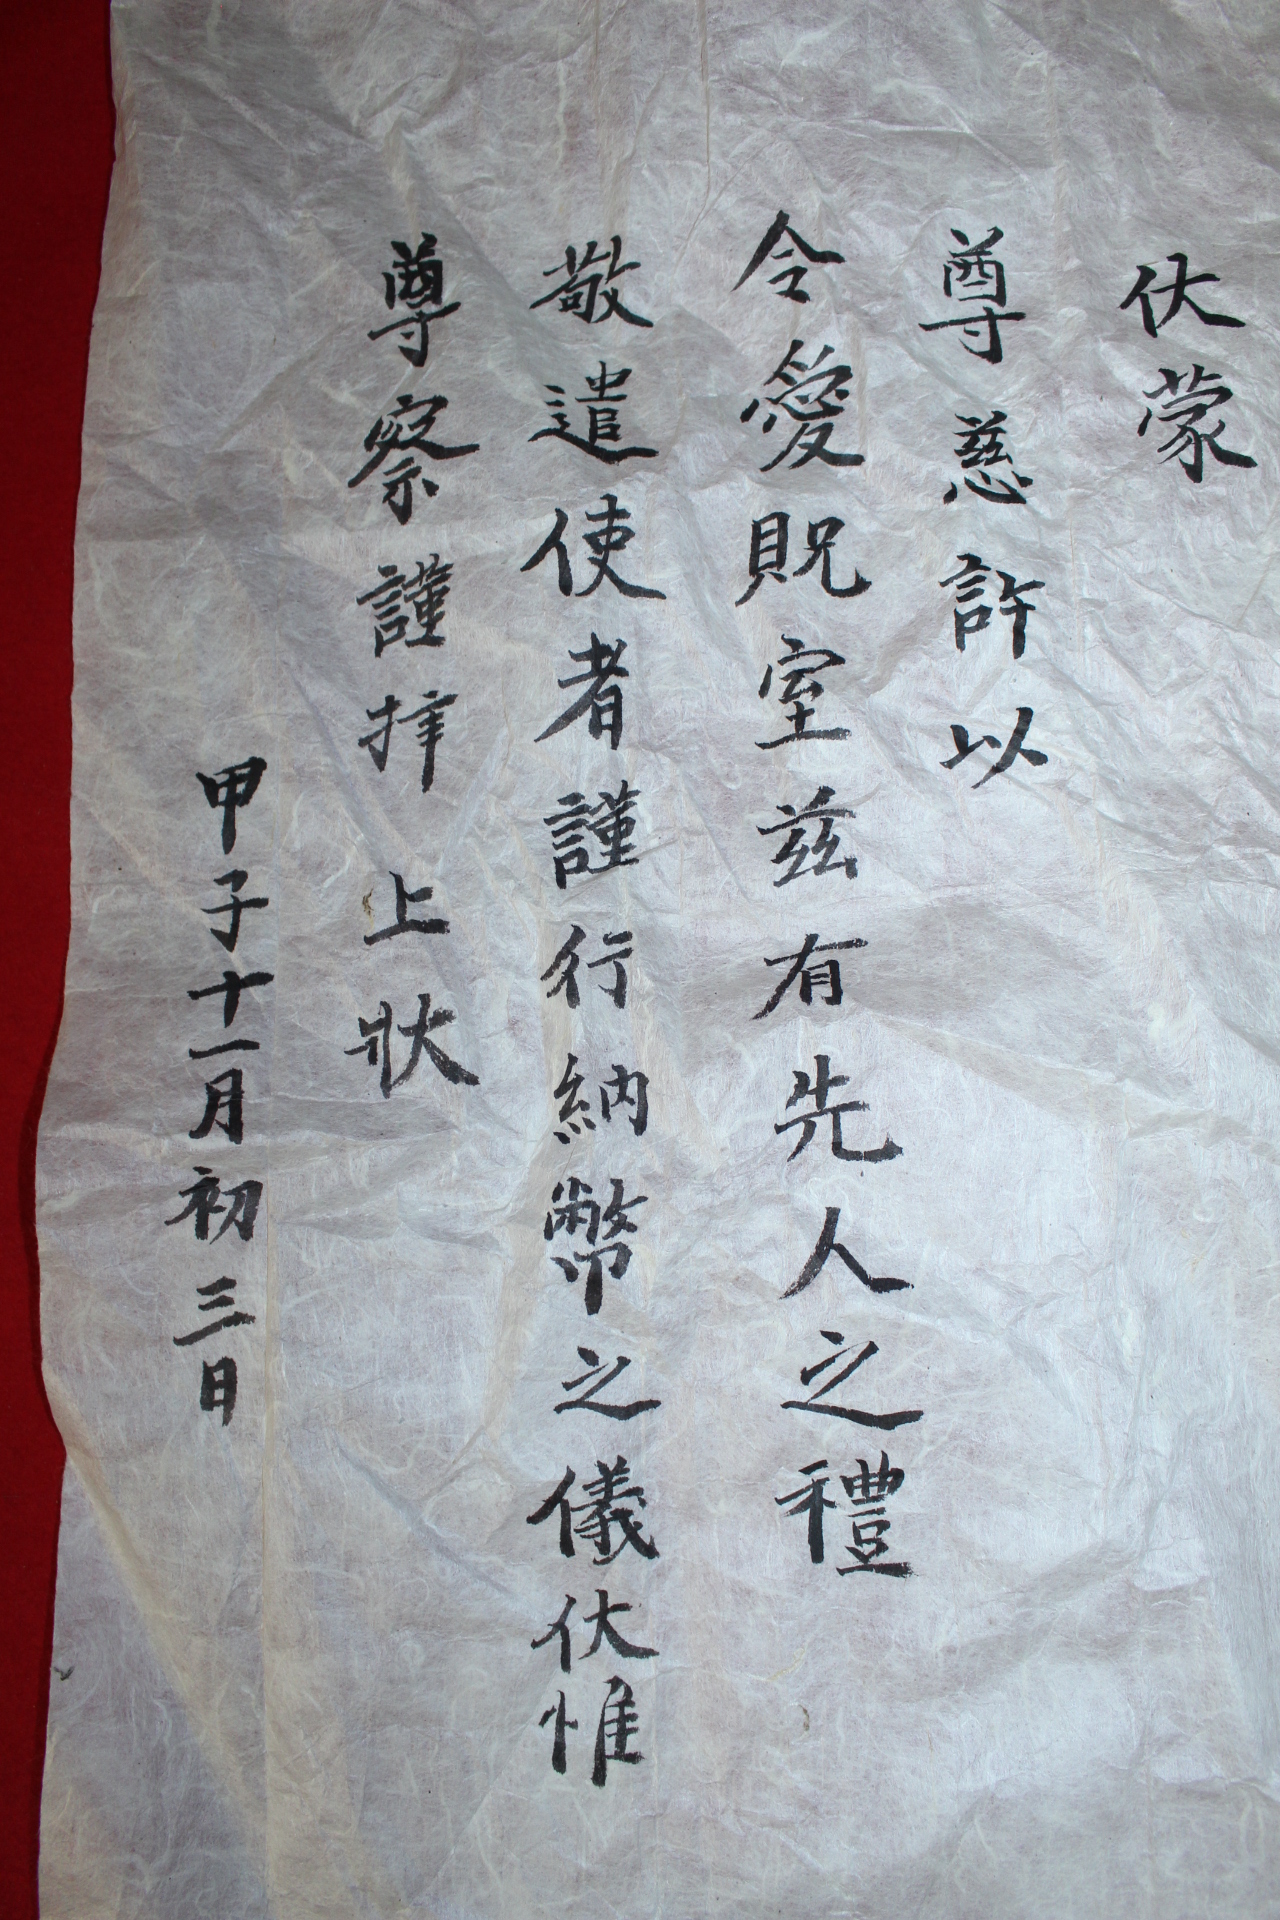 伏蒙
尊慈許以
令愛貺室玆有先人之禮
敬遣使者謹行納幣之儀伏惟
尊察謹拝上狀
甲子十一月初三日